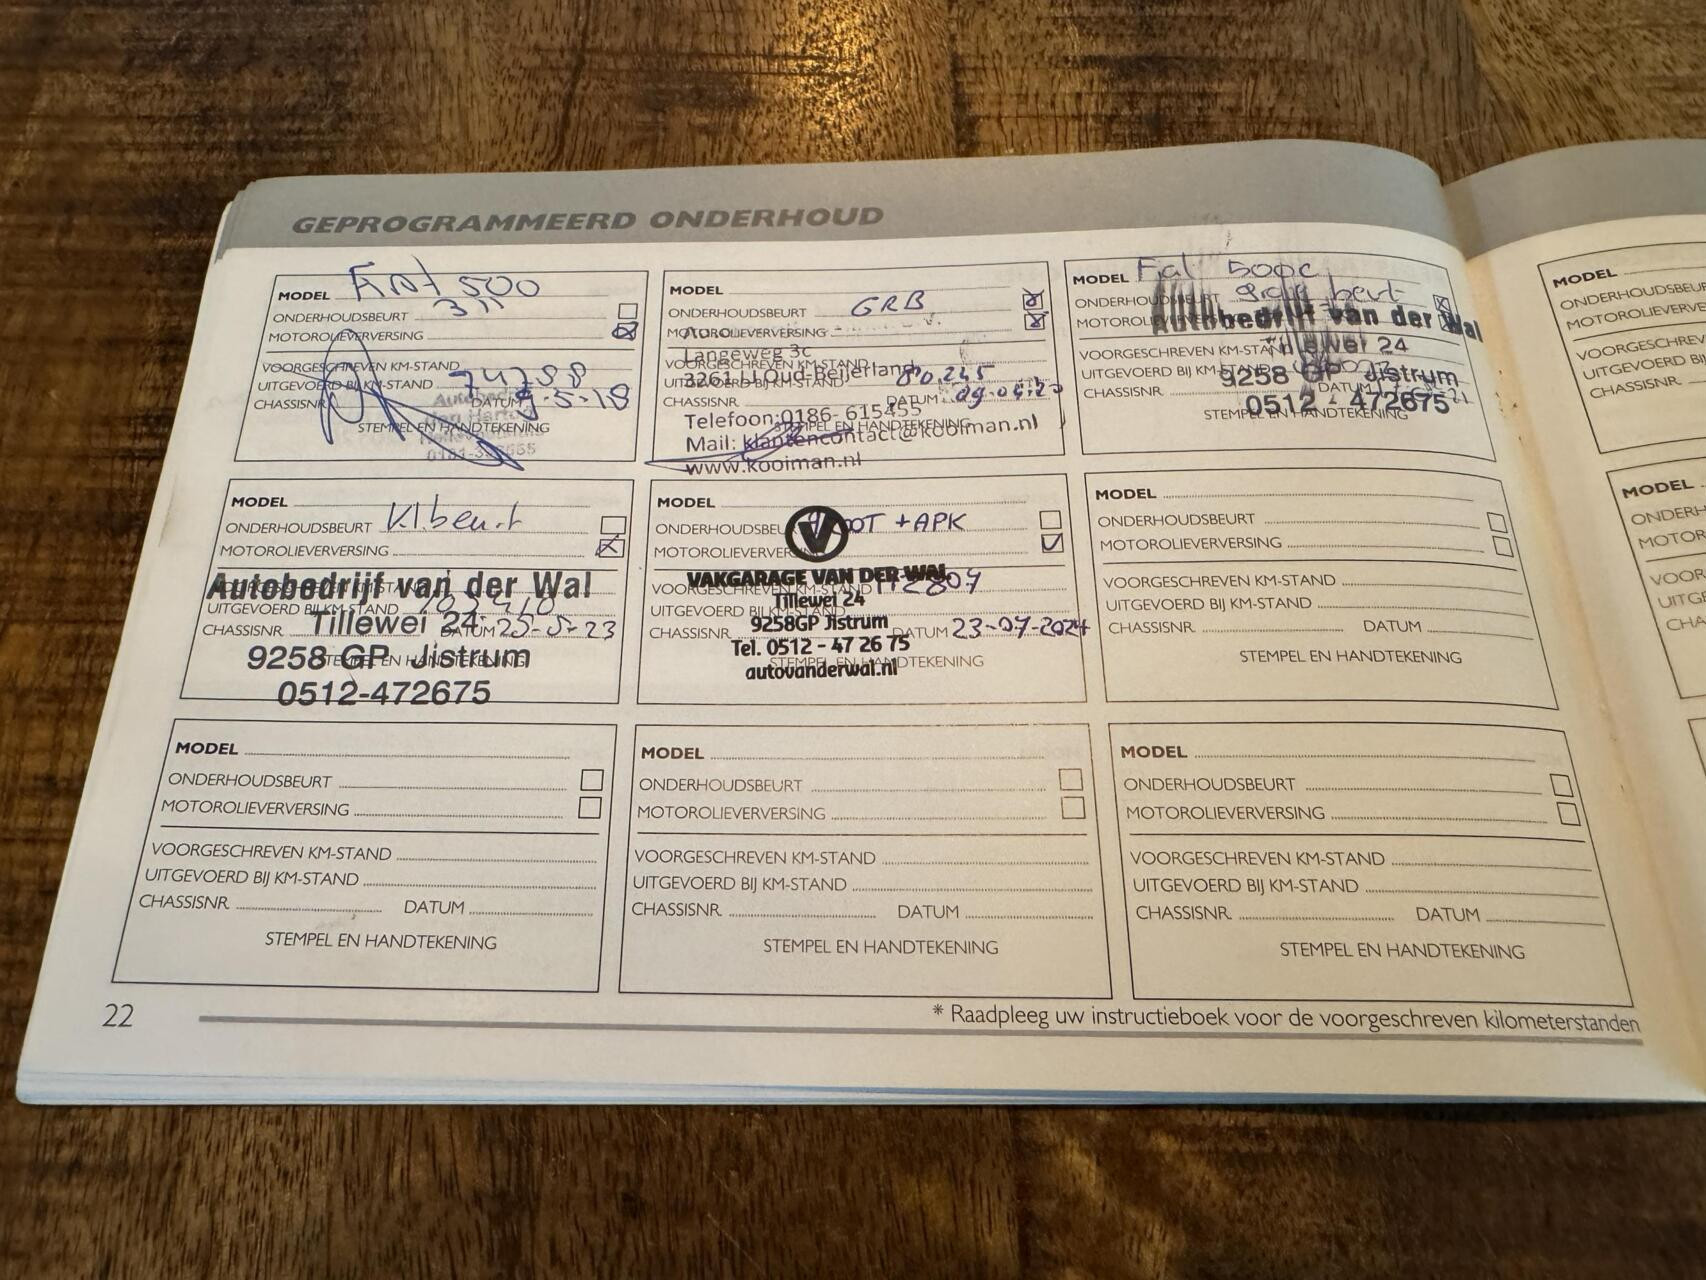 GEPROGRAMMEERD ONDERHOUD
MODEL Fiat 500
ONDERHOUDSBEURT
MOTOROLIEVERVERSING
VOORGESCHREVEN KM-STAND
UITGEVOERD BIJ KM-STAND 74788
CHASSISNR. DATUM -5-18
STEMPEL EN HANDTEKENING
MODEL
ONDERHOUDSBEURT GRB
MOTOROLIEVERVERSING
Langeweg 3c
VOORGESCHREVEN KM-STAND
3261 LJ Oud-Beijerland
UITGEVOERD BIJ KM-STAND 80.245
CHASSISNR. DATUM 09-04-20
Telefoon:0186- 615455
STEMPEL EN HANDTEKENING
Mail: klantencontact@kooiman.nl
www.kooiman.nl
MODEL Fiat 500c
ONDERHOUDSBEURT beurt
MOTOROLIEVERVERSING
Autobedrijf van der Wal
Tillewei 24
VOORGESCHREVEN KM-STAND
9258 GP Jistrum
UITGEVOERD BIJ KM-STAND
CHASSISNR. DATUM
0512 - 472675
STEMPEL EN HANDTEKENING
MODEL
ONDERHOUDSBEURT Kl beurt
MOTOROLIEVERVERSING
Autobedrijf van der Wal
VOORGESCHREVEN KM-STAND
UITGEVOERD BIJ KM-STAND
Tillewei 24
CHASSISNR. DATUM 25-5-23
9258 GP Jistrum
STEMPEL EN HANDTEKENING
0512-472675
MODEL
ONDERHOUDSBEURT GROOT + APK
MOTOROLIEVERVERSING
V
VAKGARAGE VAN DER WAL
VOORGESCHREVEN KM-STAND 112809
Tillewei 24
UITGEVOERD BIJ KM-STAND
9258GP Jistrum
CHASSISNR. DATUM 23-07-2024
Tel. 0512 - 47 26 75
STEMPEL EN HANDTEKENING
autovanderwal.nl
MODEL
ONDERHOUDSBEURT
MOTOROLIEVERVERSING
VOORGESCHREVEN KM-STAND
UITGEVOERD BIJ KM-STAND
CHASSISNR. DATUM
STEMPEL EN HANDTEKENING
MODEL
ONDERHOUDSBEURT
MOTOROLIEVERVERSING
VOORGESCHREVEN KM-STAND
UITGEVOERD BIJ KM-STAND
CHASSISNR. DATUM
STEMPEL EN HANDTEKENING
MODEL
ONDERHOUDSBEURT
MOTOROLIEVERVERSING
VOORGESCHREVEN KM-STAND
UITGEVOERD BIJ KM-STAND
CHASSISNR. DATUM
STEMPEL EN HANDTEKENING
MODEL
ONDERHOUDSBEURT
MOTOROLIEVERVERSING
VOORGESCHREVEN KM-STAND
UITGEVOERD BIJ KM-STAND
CHASSISNR. DATUM
STEMPEL EN HANDTEKENING
22
* Raadpleeg uw instructieboek voor de voorgeschreven kilometerstanden
MODEL
MODEL